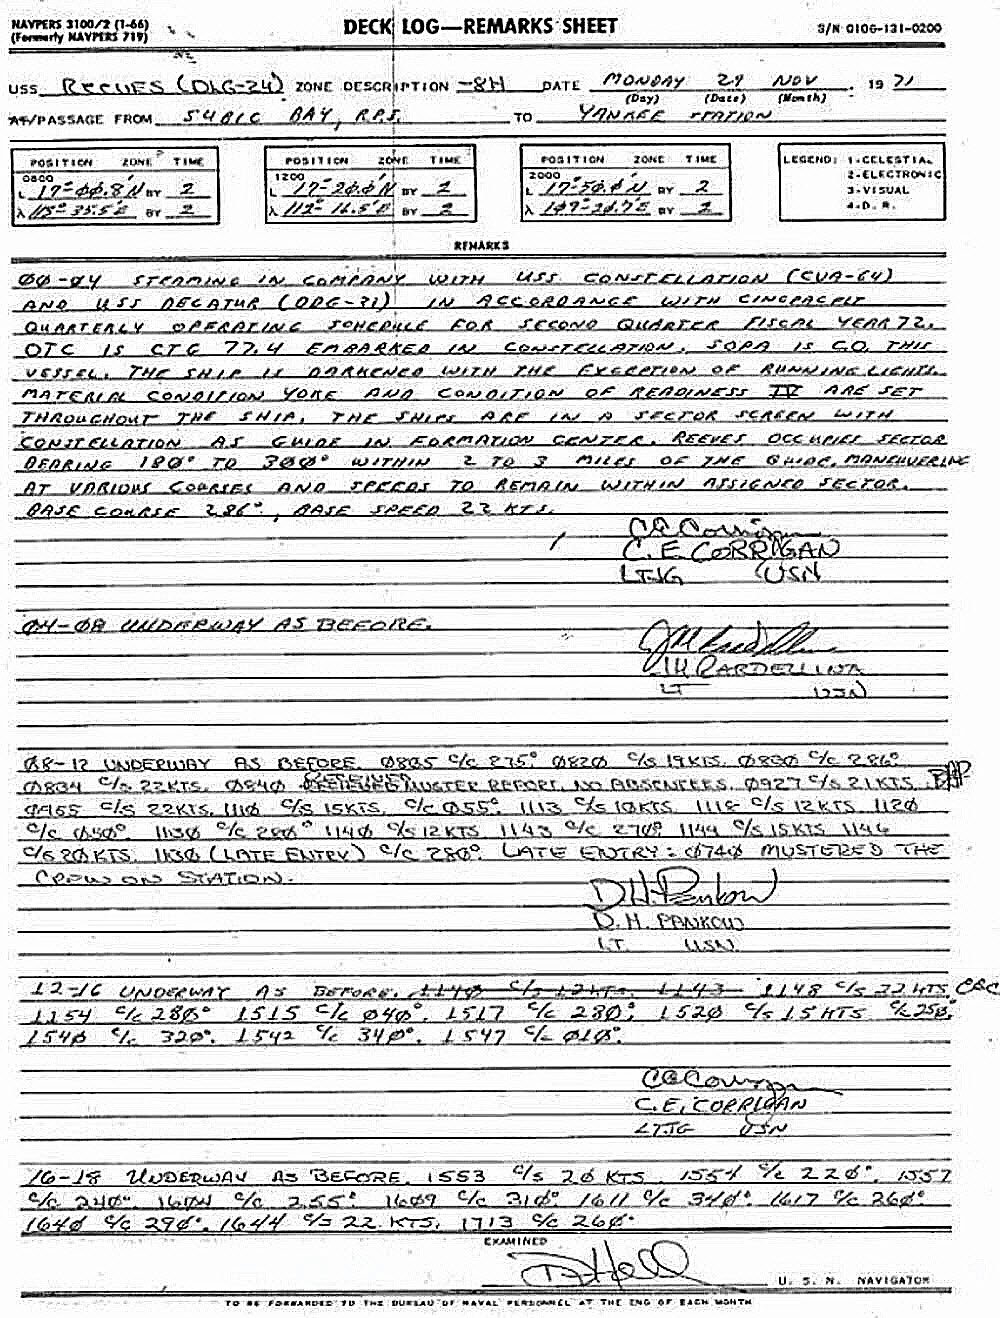 NAVPERS 3100/2 (1-66)
(Formerly NAVPERS 719)
DECK LOG—REMARKS SHEET
S/N 0106-131-0200
USS REEVES (DLG-24) ZONE DESCRIPTION -8H DATE MONDAY 29 NOV 1971
(Day) (Date) (Month)
AT/PASSAGE FROM SUBIC BAY, R.P.I. TO YANKEE STATION
POSITION ZONE TIME
0800
L 17°-00.8'N BY 2
λ 115°-35.5'E BY 2
POSITION ZONE TIME
1200
L 17°-20.0'N BY 2
λ 112°-16.5'E BY 2
POSITION ZONE TIME
2000
L 17°-50.0'N BY 2
λ 109°-20.7'E BY 2
LEGEND: 1-CELESTIAL
2-ELECTRONIC
3-VISUAL
4-D. R.
REMARKS
00-04 STEAMING IN COMPANY WITH USS CONSTELLATION (CVA-64)
AND USS DECATUR (DDG-31) IN ACCORDANCE WITH CINCPACFLT
QUARTERLY OPERATING SCHEDULE FOR SECOND QUARTER FISCAL YEAR 72.
OTC IS CTG 77.4 EMBARKED IN CONSTELLATION. SOPA IS C.O. THIS
VESSEL. THE SHIP IS DARKENED WITH THE EXCEPTION OF RUNNING LIGHTS.
MATERIAL CONDITION YOKE AND CONDITION OF READINESS IV ARE SET
THROUGHOUT THE SHIP. THE SHIPS ARE IN A SECTOR SCREEN WITH
CONSTELLATION AS GUIDE IN FORMATION CENTER. REEVES OCCUPIES SECTOR
BEARING 180° TO 300° WITHIN 2 TO 3 MILES OF THE GUIDE, MANEUVERING
AT VARIOUS COURSES AND SPEEDS TO REMAIN WITHIN ASSIGNED SECTOR.
BASE COURSE 286°, BASE SPEED 22 KTS.
C E Corrigan
C. E. CORRIGAN
LTJG USN
04-08 UNDERWAY AS BEFORE.
LT USN
08-12 UNDERWAY AS BEFORE. 0805 C/C 275° 0820 C/S 19 KTS. 0830 C/C 286°
0834 C/S 22 KTS. 0840 RECEIVED MUSTER REPORT, NO ABSENTEES. 0927 C/S 21 KTS. DHP
0955 C/S 22 KTS. 1110 C/S 15 KTS, C/C 055°. 1113 C/S 10 KTS. 1118 C/S 12 KTS 1120
C/C 050°. 1130 C/C 280° 1140 C/S 12 KTS 1143 C/C 270° 1144 C/S 15 KTS 1146
C/S 20 KTS. 1130 (LATE ENTRY) C/C 280°. LATE ENTRY: 0740 MUSTERED THE
CREW ON STATION.
D.H. Pankow
D. H. PANKOW
LT. USN
12-16 UNDERWAY AS BEFORE. 1140 C/S 12 KTS. 1143 1148 C/S 22 KTS. CEC
1154 C/C 280° 1515 C/C 040°. 1517 C/C 230°, 1520 C/S 15 KTS C/C 250°,
1540 C/C 320°. 1542 C/C 340°. 1547 C/C 010°.
C E Corrigan
C. E. CORRIGAN
LTJG USN
16-18 UNDERWAY AS BEFORE. 1553 C/S 20 KTS. 1554 C/C 220°. 1557
C/C 240°. 1604 C/C 255° 1609 C/C 310° 1611 C/C 340°. 1617 C/C 260°
1640 C/C 290°. 1644 C/S 22 KTS. 1713 C/C 260°
EXAMINED
U. S. N. NAVIGATOR
TO BE FORWARDED TO THE BUREAU OF NAVAL PERSONNEL AT THE END OF EACH MONTH